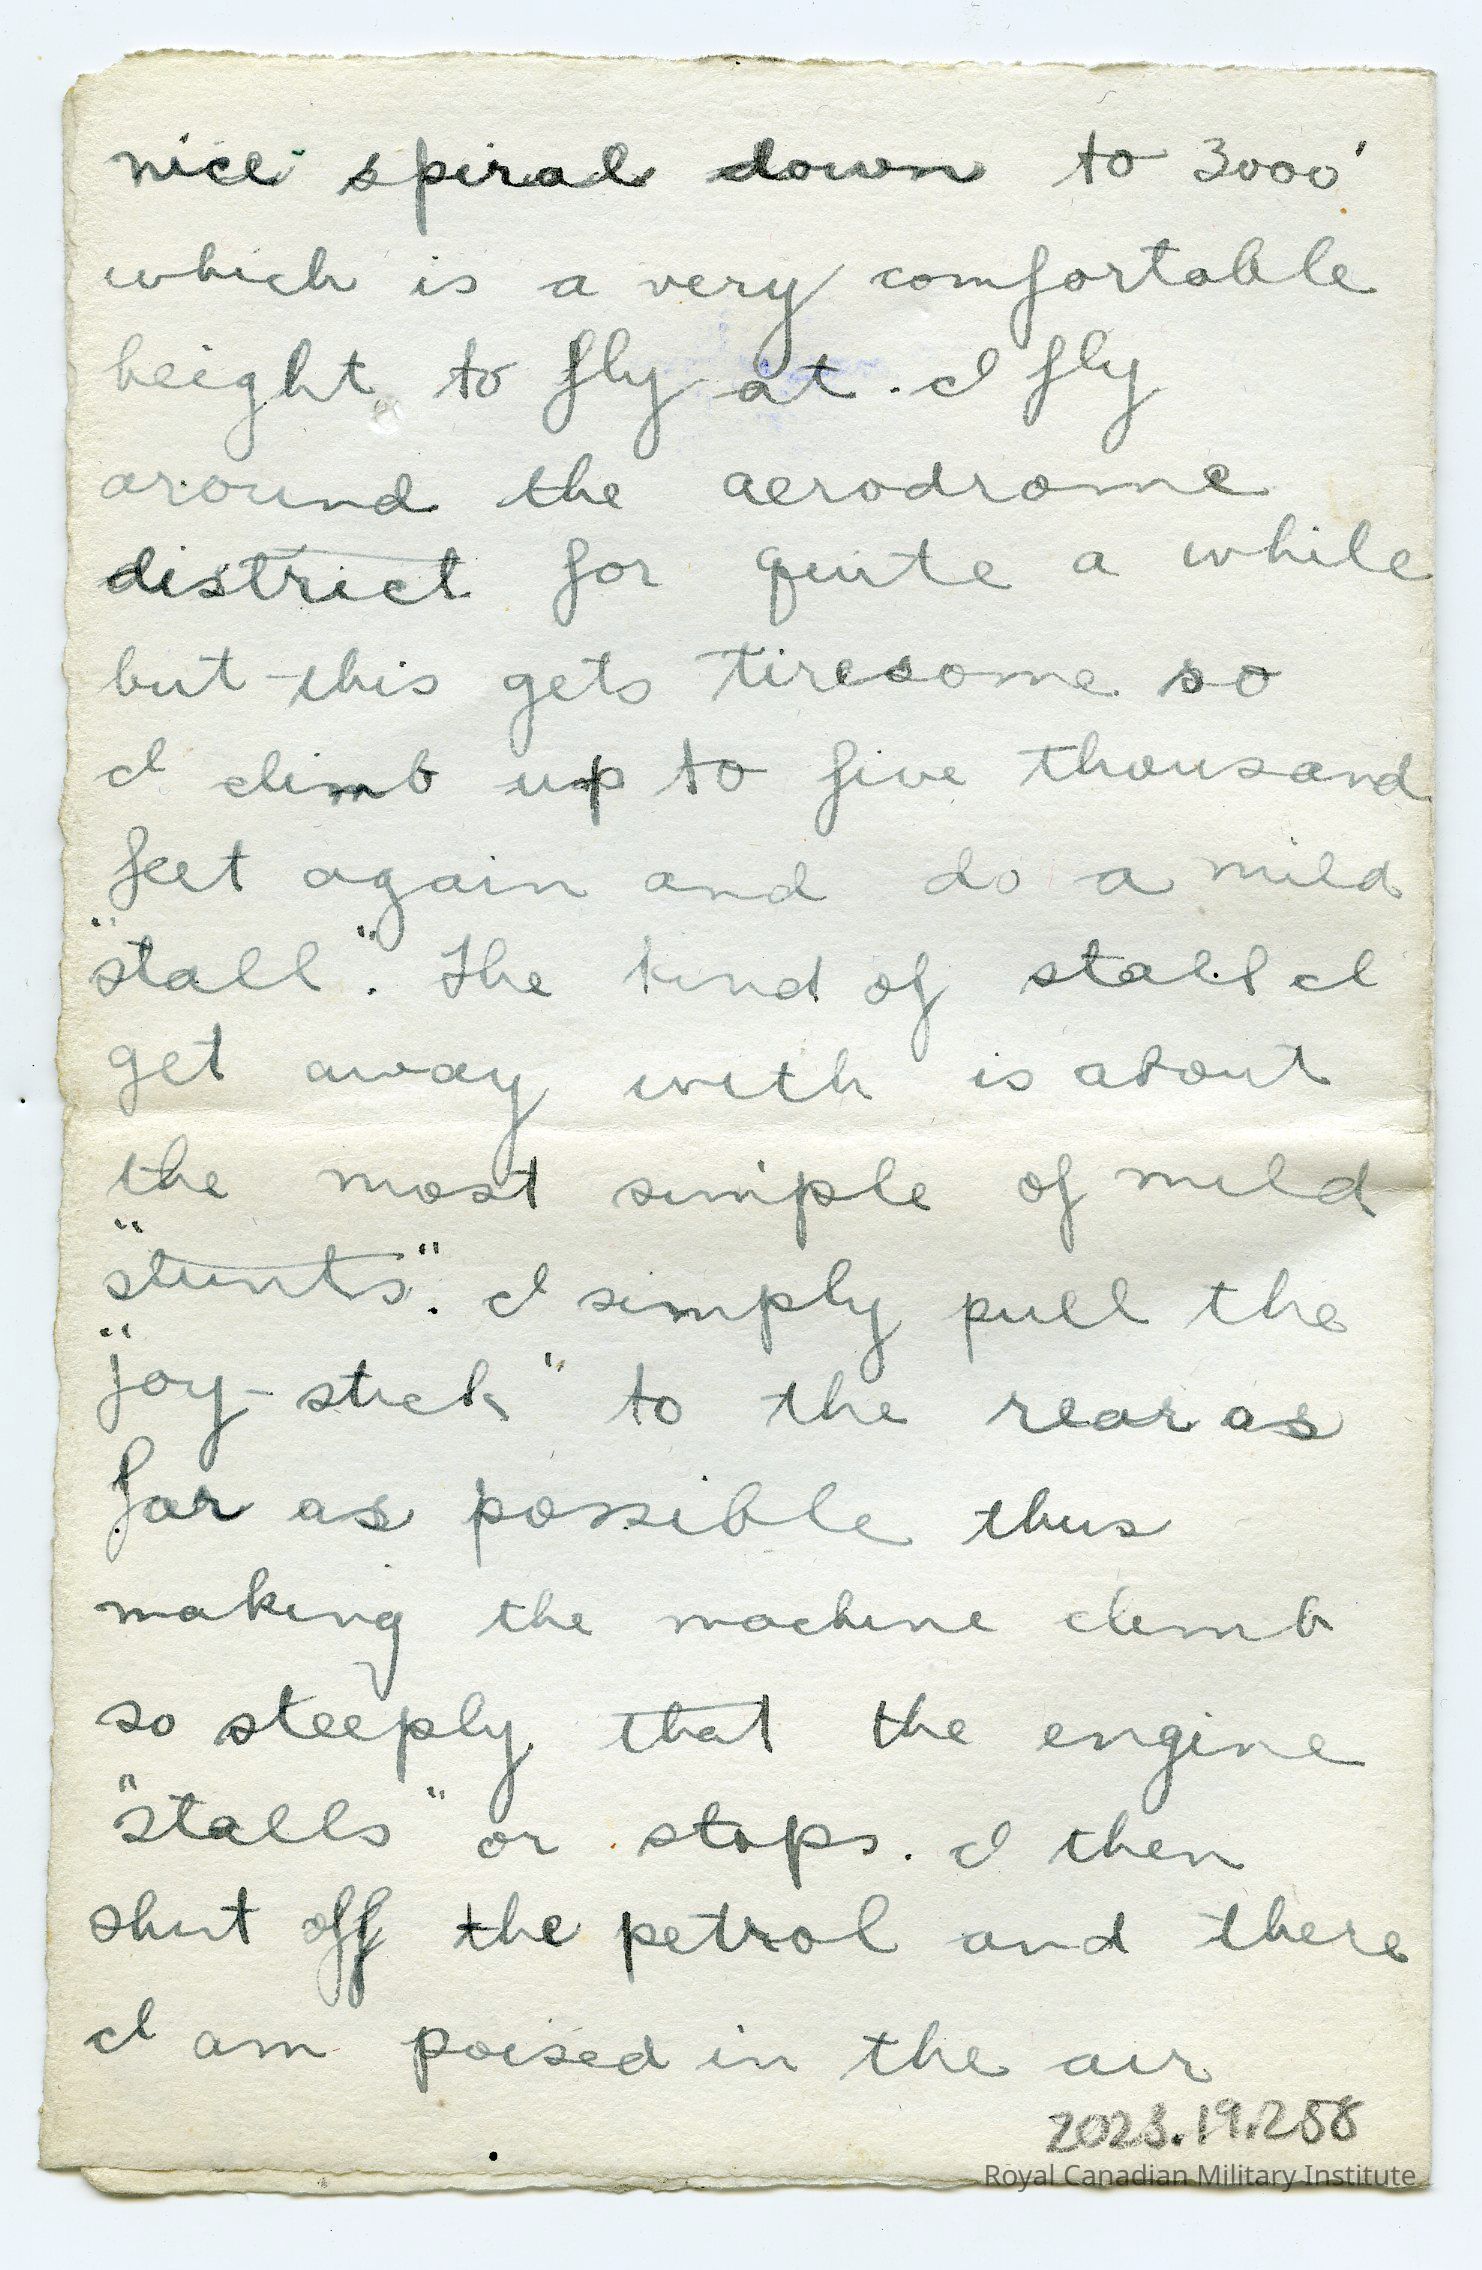 nice spiral down to 3000'
which is a very comfortable
height to fly at. I fly
around the aerodrome
district for quite a while
but this gets tiresome so
I climb up to five thousand
feet again and do a mild
"stall". The kind of stall I
get away with is about
the most simple of mild
"stunts". I simply pull the
"joy-stick" to the rear as
far as possible thus
making the machine climb
so steeply that the engine
"stalls" or stops. I then
shut off the petrol and there
I am poised in the air
2023.19.258
Royal Canadian Military Institute